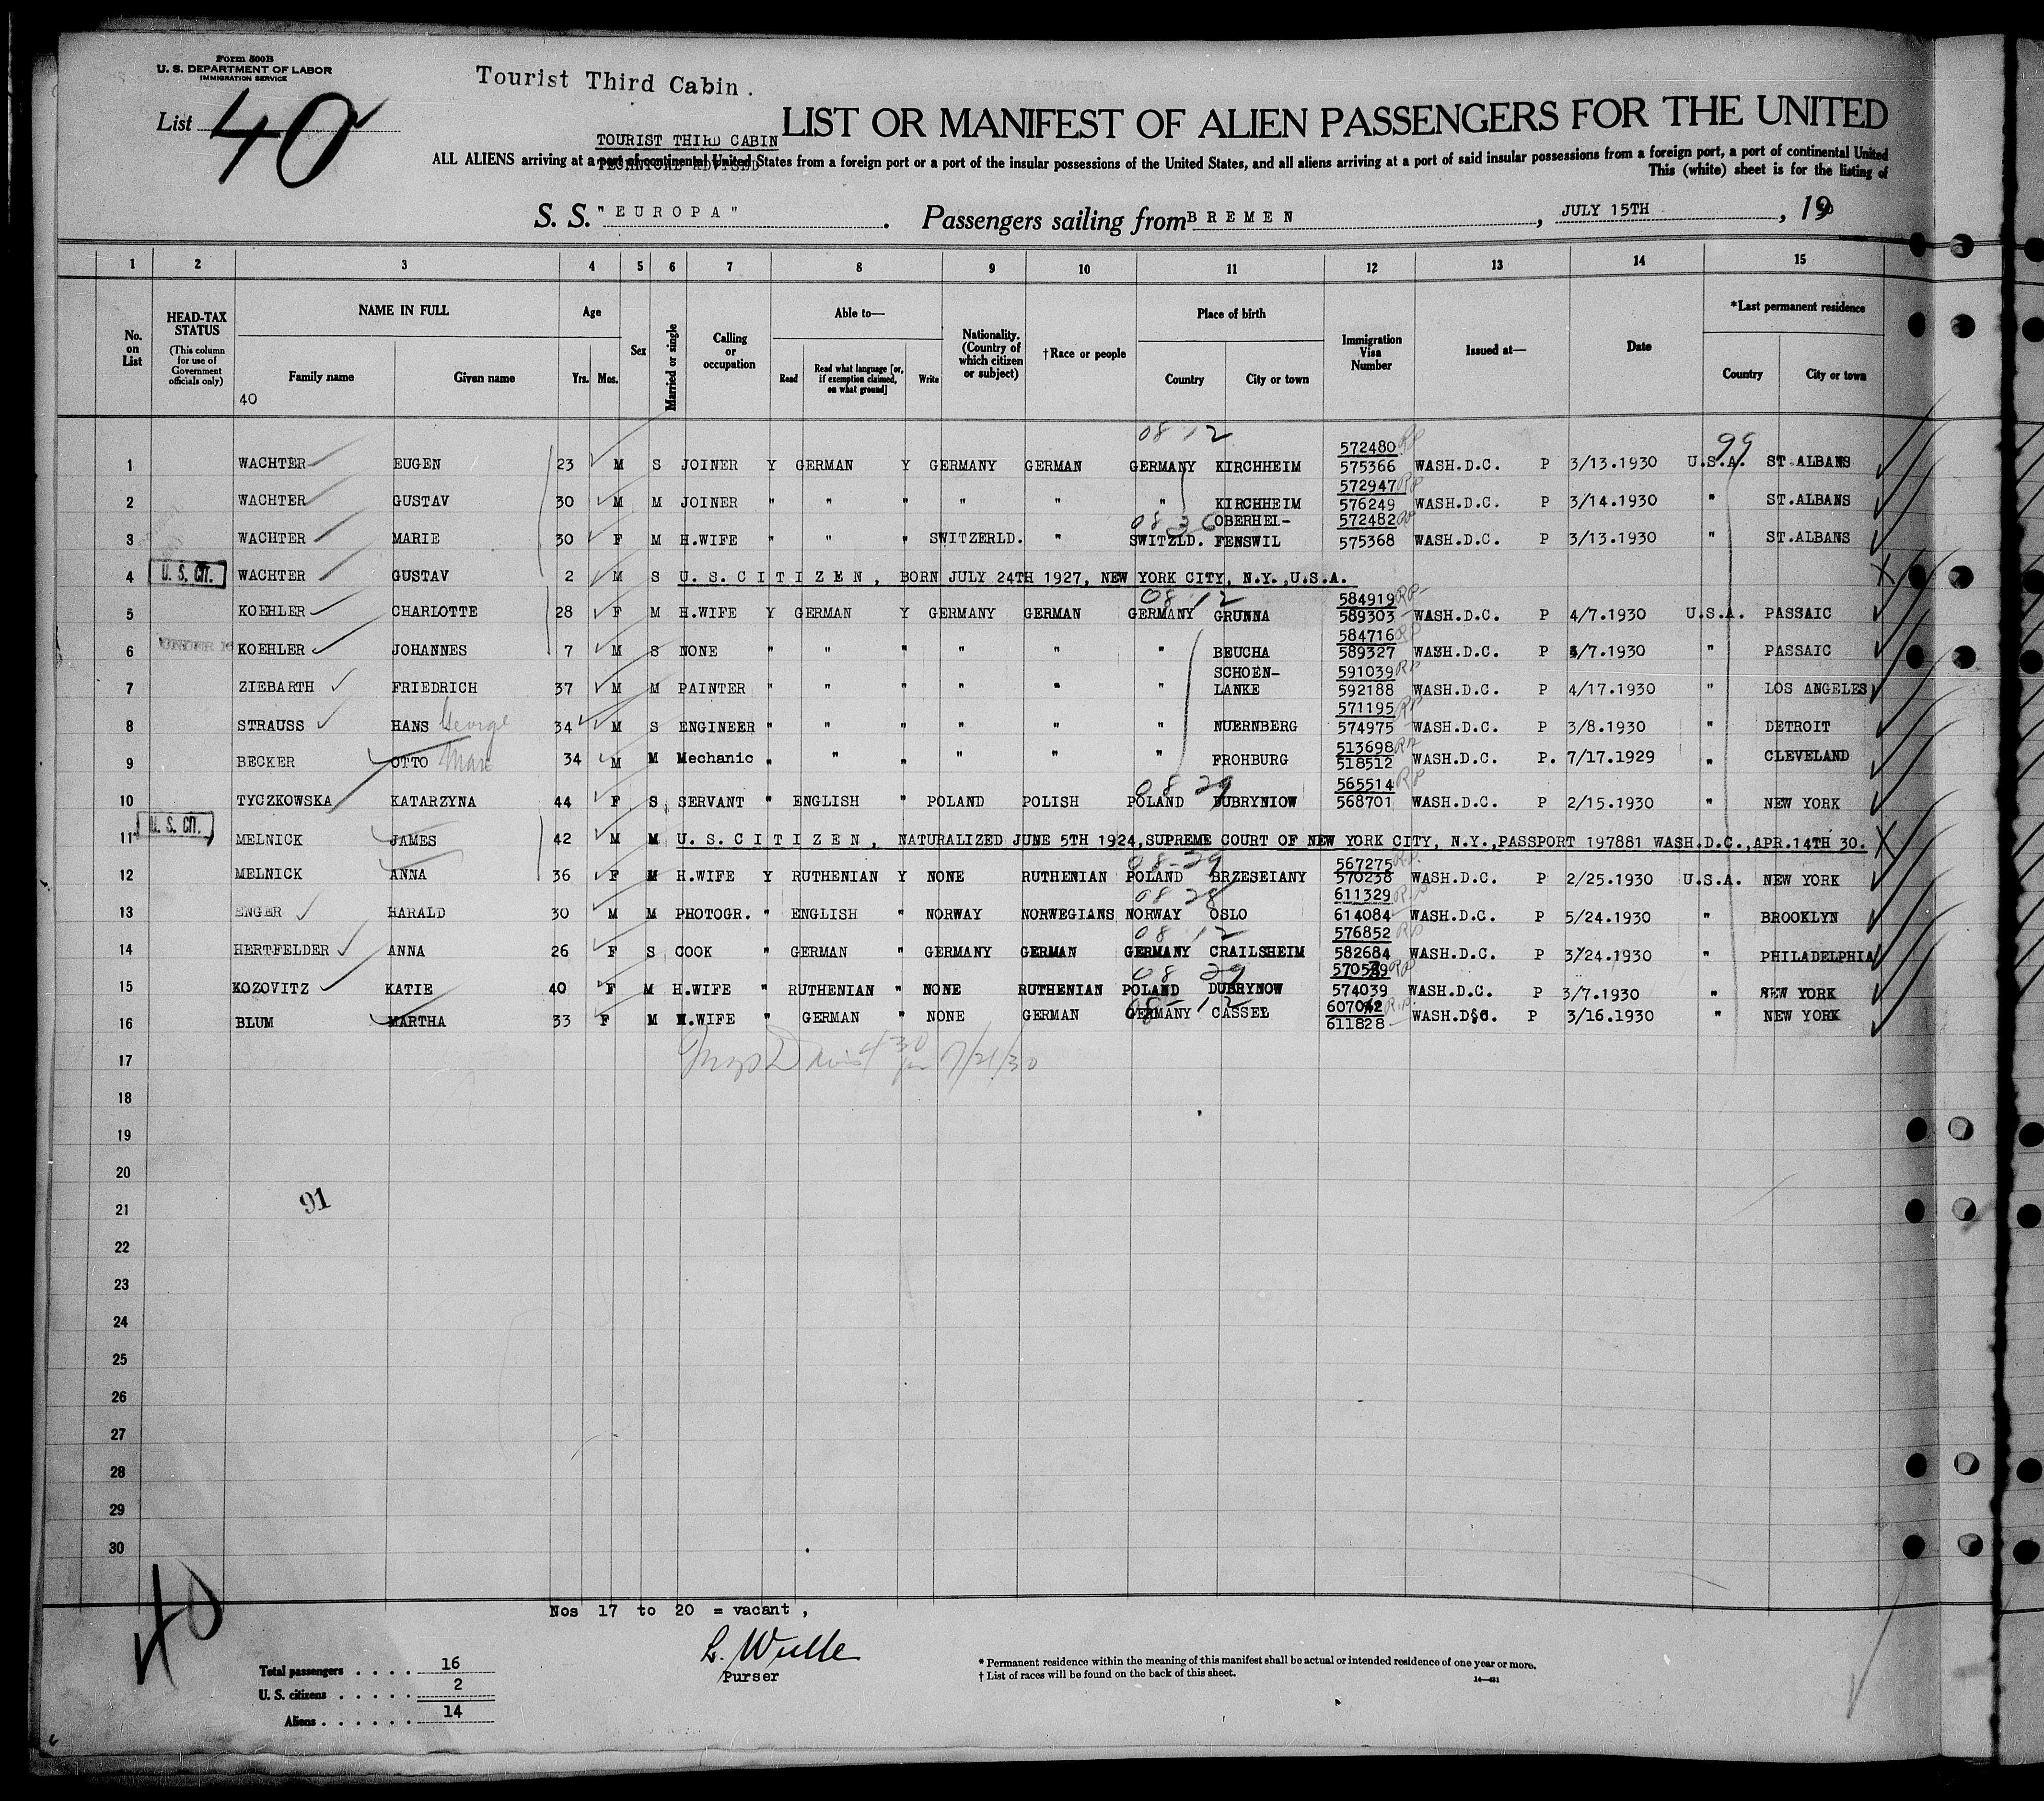 Form 500B
U. S. DEPARTMENT OF LABOR
IMMIGRATION SERVICE
Tourist Third Cabin.
List 40
LIST OR MANIFEST OF ALIEN PASSENGERS FOR THE UNITED
TOURIST THIRD CABIN
ALL ALIENS arriving at a port of continental United States from a foreign port or a port of the insular possessions of the United States, and all aliens arriving at a port of said insular possessions from a foreign port, a port of continental United
This (white) sheet is for the listing of
S. S. "EUROPA". Passengers sailing from BREMEN, JULY 15TH, 1930
1 2 3 4 5 6 7 8 9 10 11 12 13 14 15
No. on List
HEAD-TAX STATUS (This column for use of Government officials only)
NAME IN FULL Family name Given name
40
Age Yrs. Mos.
Sex
Married or single
Calling or occupation
Able to— Read Read what language [or, if exemption claimed, on what ground] Write
Nationality. (Country of which citizen or subject)
†Race or people
Place of birth Country City or town
Immigration Visa Number
Issued at—
Date
*Last permanent residence Country City or town
08 12 572480 RP 99
1 WACHTER EUGEN 23 M S JOINER Y GERMAN Y GERMANY GERMAN GERMANY KIRCHHEIM 575366 WASH.D.C. P 3/13.1930 U.S.A. ST.ALBANS
572947 RP
2 WACHTER GUSTAV 30 M M JOINER " " " " " " KIRCHHEIM 576249 WASH.D.C. P 3/14.1930 " ST.ALBANS
08 36 OBERHEL- 572482 RP
3 WACHTER MARIE 30 F M H.WIFE " " " SWITZERLD. " SWITZLD. FENSWIL 575368 WASH.D.C. P 3/13.1930 " ST.ALBANS
4 U. S. CIT. WACHTER GUSTAV 2 M S U. S. C I T I Z E N , BORN JULY 24TH 1927, NEW YORK CITY, N.Y.,U.S.A.
08 12 584919 RP
5 KOEHLER CHARLOTTE 28 F M H.WIFE Y GERMAN Y GERMANY GERMAN GERMANY GRUNNA 589303 WASH.D.C. P 4/7.1930 U.S.A. PASSAIC
584716 RP
6 UNDER 16 KOEHLER JOHANNES 7 M S NONE " " " " " " BEUCHA 589327 WASH.D.C. P 4/7.1930 " PASSAIC
SCHOEN- 591039 RP
7 ZIEBARTH FRIEDRICH 37 M M PAINTER " " " " " " LANKE 592188 WASH.D.C. P 4/17.1930 " LOS ANGELES
571195 RP
8 STRAUSS HANS George 34 M S ENGINEER " " " " " " NUERNBERG 574975 WASH.D.C. P 3/8.1930 " DETROIT
513698 RP
9 BECKER OTTO Max 34 M M Mechanic " " " " " " FROHBURG 518512 WASH.D.C. P. 7/17.1929 " CLEVELAND
08 29 565514 RP
10 TYCZKOWSKA KATARZYNA 44 F S SERVANT " ENGLISH " POLAND POLISH POLAND DUBRYNIOW 568701 WASH.D.C. P 2/15.1930 " NEW YORK
11 U. S. CIT. MELNICK JAMES 42 M M U. S. C I T I Z E N , NATURALIZED JUNE 5TH 1924,SUPREME COURT OF NEW YORK CITY, N.Y.,PASSPORT 197881 WASH.D.C.,APR.14TH 30.
08-29 567275 RP
12 MELNICK ANNA 36 F M H.WIFE Y RUTHENIAN Y NONE RUTHENIAN POLAND BRZESEIANY 570238 WASH.D.C. P 2/25.1930 U.S.A. NEW YORK
08 28 611329 RP
13 ENGER HARALD 30 M M PHOTOGR. " ENGLISH " NORWAY NORWEGIANS NORWAY OSLO 614084 WASH.D.C. P 5/24.1930 " BROOKLYN
08 12 576852 RP
14 HERTFELDER ANNA 26 F S COOK " GERMAN " GERMANY GERMAN GERMANY CRAILSHEIM 582684 WASH.D.C. P 3/24.1930 " PHILADELPHIA
08 29 RP
15 KOZOVITZ KATIE 40 F M H.WIFE " RUTHENIAN " NONE RUTHENIAN POLAND DUBRYNOW 574039 WASH.D.C. P 3/7.1930 " NEW YORK
08-12 607042 RP
16 BLUM MARTHA 33 F M H.WIFE " GERMAN " NONE GERMAN GERMANY CASSEL 611828 WASH.D.C. P 3/16.1930 " NEW YORK
17 7/21/30
18
19
20
91
21
22
23
24
25
26
27
28
29
30
40
Nos 17 to 20 = vacant,
L. Wulle
Purser
Total passengers . . . . 16
U. S. citizens . . . . . 2
Aliens . . . . . . 14
* Permanent residence within the meaning of this manifest shall be actual or intended residence of one year or more.
† List of races will be found on the back of this sheet.
14—421